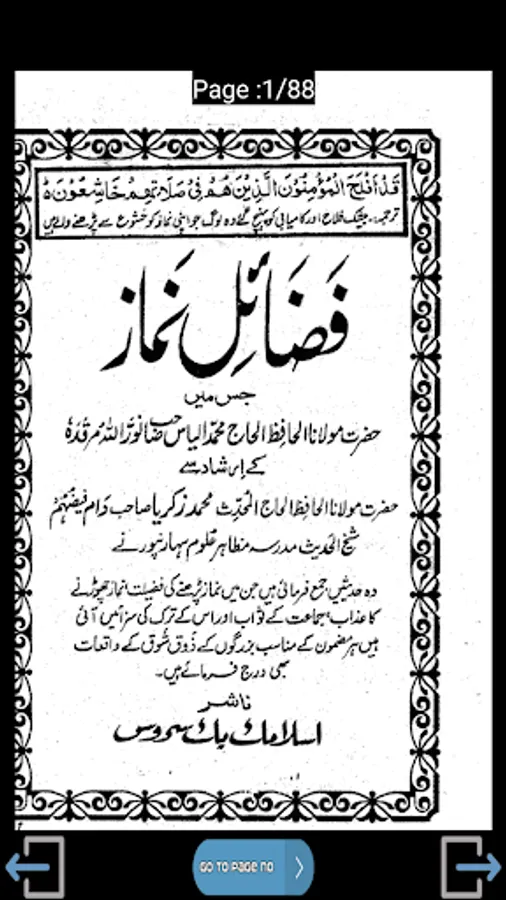 Page :1/88
قَدْ اَفْلَحَ الْمُؤْمِنُوْنَ الَّذِيْنَ هُمْ فِيْ صَلَاتِهِمْ خَاشِعُوْنَ ہ
ترجمہ: بیشک فلاح اور کامیابی کو پہنچ گئے وہ لوگ جو اپنی نماز کو خشوع سے پڑھنے والے ہیں
فَضَائِلِ نَمَاز
جس میں
حضرت مولانا الحافظ الحاج محمد الیاس صاحب نوّر اللہ مرقدہٗ
کے ارشاد سے
حضرت مولانا الحافظ الحاج المحدّث محمد زکریا صاحب دام فیضہم
شیخ الحدیث مدرسہ مظاہر علوم سہارنپور نے
وہ حدیثیں جمع فرمائی ہیں جن میں نماز پڑھنے کی فضیلت نماز چھوڑنے
کا عذاب، جماعت کے ثواب اور اس کے ترک کی سزائیں آئی
ہیں ہر مضمون کے مناسب بزرگوں کے ذوق شوق کے واقعات
بھی درج فرمائے ہیں۔
ناشر
اسلامک بک سروس
GO TO PAGE NO